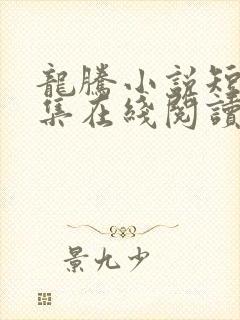 龍騰小說短
集在綫閱讀
景九少